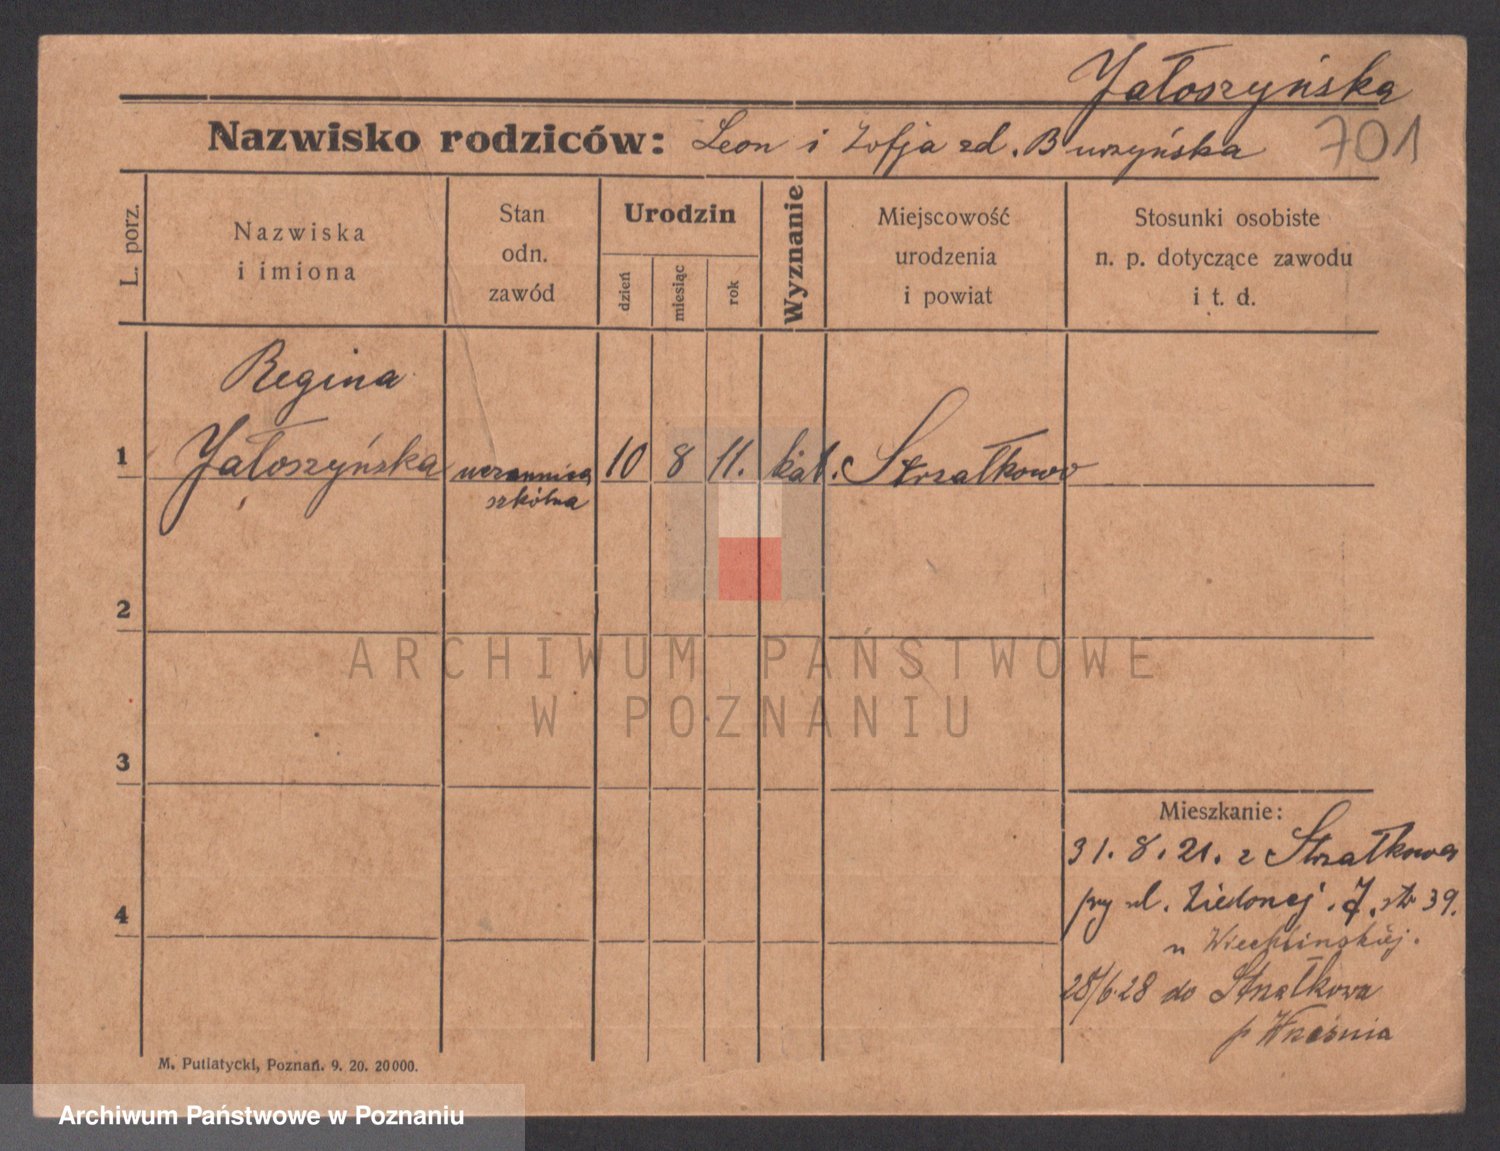 Jałoszyńska
Nazwisko rodziców: Leon i Zofja zd. Burzyńska 701
L. porz.
Nazwiska
i imiona
Stan
odn.
zawód
Urodzin
dzień
miesiąc
rok
Wyznanie
Miejscowość
urodzenia
i powiat
Stosunki osobiste
n. p. dotyczące zawodu
i t. d.
Regina
1 Jałoszyńska uczennica 10 8 11. kat. Strzałkowo
szkólna
2
ARCHIWUM PAŃSTWOWE
W POZNANIU
3
Mieszkanie:
31. 8. 21. z Strzałkowa
4 przy ul. Zielonej 7. str 39.
u
28/6.28 do Strzałkowa
p Września
M. Putiatycki, Poznań. 9. 20. 20000.
Archiwum Państwowe w Poznaniu